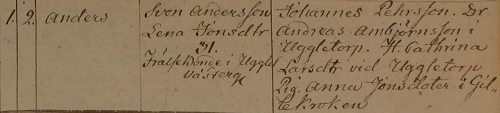 1. 2. Anders
Sven Andersson
Lena Jonsdtr
31.
Frälse Bonde i Uggl
Västerg
Johannes Pehrsson. Dr
Andreas Ambjörnsson i
Uggletorp. H. Cathrina
Larsdtr vid Uggletorp
Pig. Anna Jonsdoter i Gil-
lekroken